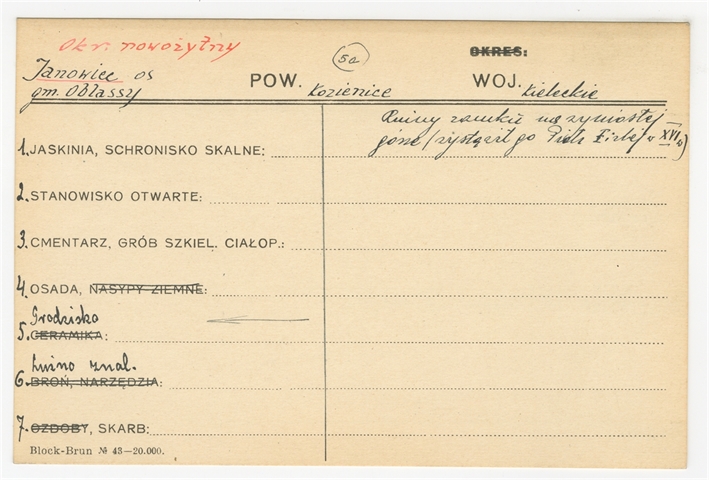 Okr. nowożytny
5a
OKRES:
Janowiec os
POW. Kozienice
WOJ. Kieleckie
gm. Oblassy
Ruiny zamku na wyniosłej
górze (wystawił go Piotr Firlej w XVI w)
1. JASKINIA, SCHRONISKO SKALNE:
2. STANOWISKO OTWARTE:
3. CMENTARZ, GRÓB SZKIEL. CIAŁOP.:
4. OSADA, NASYPY ZIEMNE:
Grodzisko
5. CERAMIKA:
Luźno znal.
6. BROŃ, NARZĘDZIA:
7. OZDOBY, SKARB:
Block-Brun № 43—20.000.